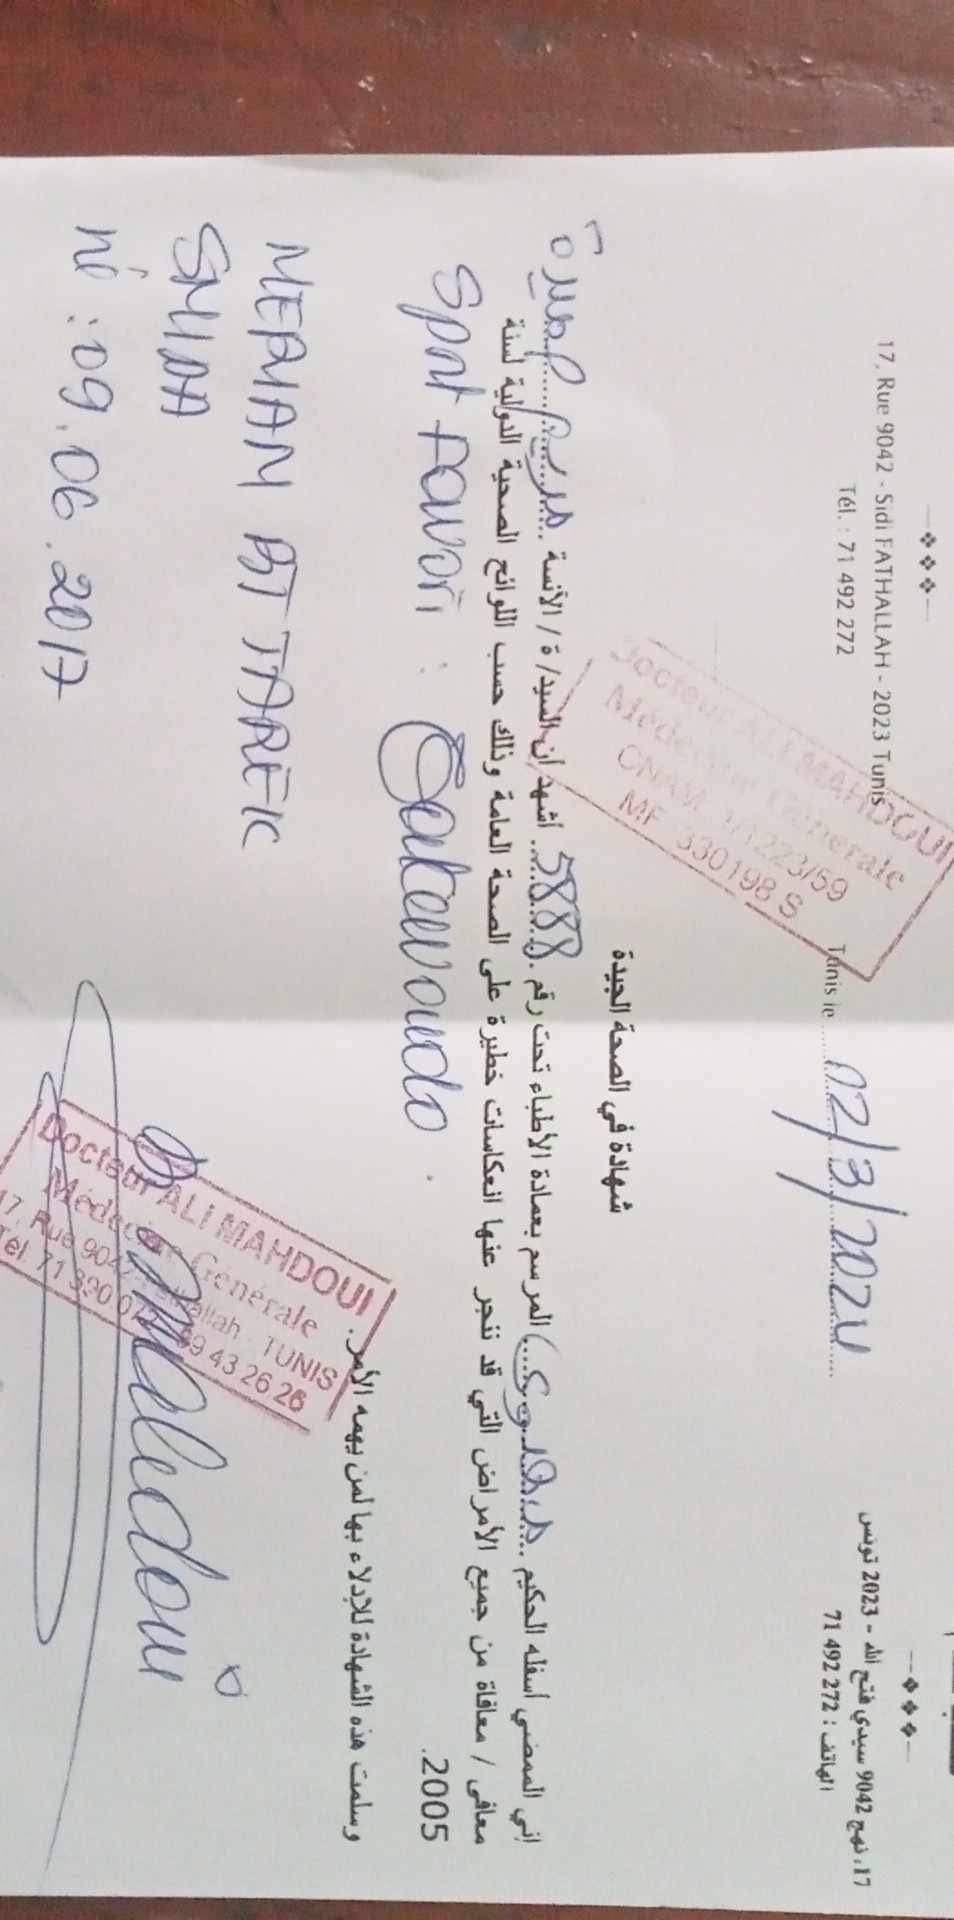 17, Rue 9042 - Sidi FATHALLAH - 2023 Tunis
Tél. : 71 492 272
17، نهج 9042 سيدي فتح الله - 2023 تونس
الهاتف : 71 492 272
Docteur ALI MAHDOUI
Médecine Générale
CNAM 1/1223/59
MF 330198 S
Tunis le 02/3/2024
شهادة في الصحة الجيدة
إني الممضي أسفله الحكيم مهدوي علي المرسم بعمادة الأطباء تحت رقم 5888 أشهد أن السيد/ة / الآنسة مريم
معافى / معافاة من جميع الأمراض التي قد تنجر عنها انعكاسات خطيرة على الصحة العامة وذلك حسب اللوائح الصحية الدولية لسنة
2005.
Sport favori : Taekwondo.
وسلمت هذه الشهادة للإدلاء بها لمن يهمه الأمر.
MERIAM BT TAREK
SMIDA
né : 09.06.2017
Dr Mahdoui
Docteur ALI MAHDOUI
Médecine Générale
17, Rue 9042 Fathallah - TUNIS
Tél. 71 390 99 43 26 26